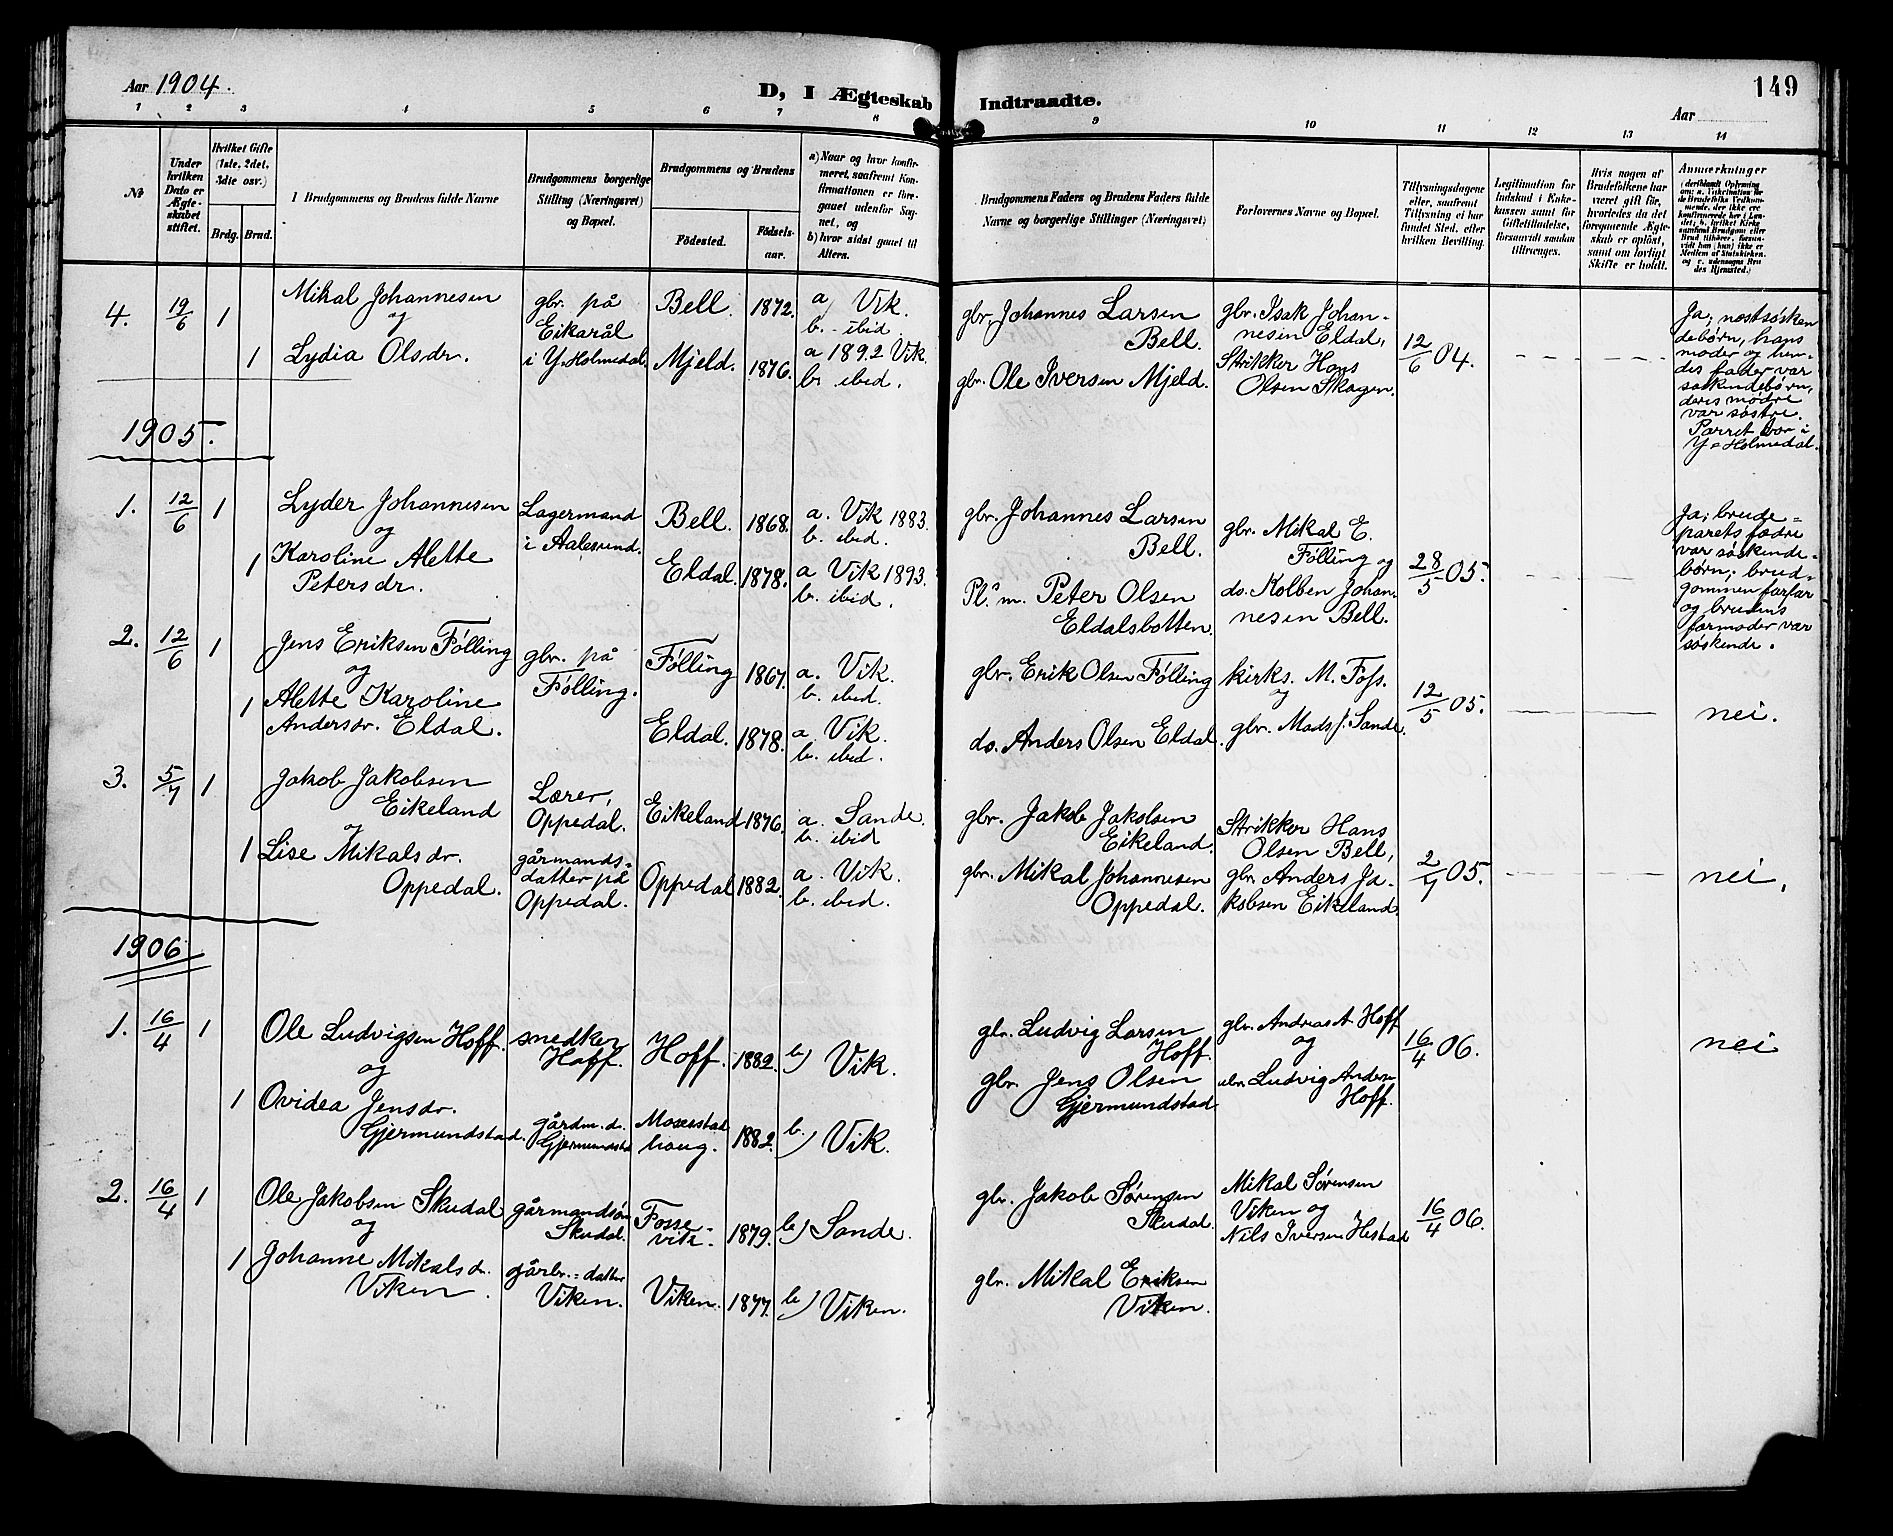 Aar 1904.
D, I Ægteskab Indtraadte.
149
Aar
1 2 3 4 5 6 7 8 9 10 11 12 13 14
No
Under hvilken Dato er Ægteskabet stiftet.
Hvilket Gifte (1ste, 2det, 3die osv.)
Brdg. Brud.
Brudgommens og Brudens fulde Navne
Brudgommens borgerlige Stilling (Næringsvei) og Bopæl.
Brudgommens og Brudens
Födested.
Födselsaar.
a) Naar og hvor konfirmeret, saafremt Konfirmationen er foregaaet udenfor Sognet, og
b) hvor sidst gaaet til Alters.
Brudgommens Faders og Brudens Faders fulde Navne og borgerlige Stillinger (Næringsvei)
Forlovernes Navne og Bopæl.
Tillysningsdagene eller, saafremt Tillysning ei har fundet Sted, efter hvilken Bevilling.
Legitimation for Indskud i Enkekassen samt for Giftetilladelse, forsaavidt saadan tiltrænges.
Hvis nogen af Brudefolkene har været gift før, hvorledes da det foregaaende Ægteskab er oplöst, samt om lovligt Skifte er holdt.
Anmærkninger
4. 19/6 1
Mikal Johannesen
og
1 Lydia Olsdr.
gbr. på
Eikarål
i Y. Holmedal.
Bell. 1872.
a) Vik.
b. - ibid.
Mjeld. 1876.
a 1892 Vik.
b. ibid.
gbr. Johannes Larsen
Bell.
gbr. Ole Iversen Mjeld.
gbr. Isak Johan-
nesen Eldal,
Strikker Hans
Olsen Skagen.
12/6 04.
Ja; næstsøsken
debørn, hans
moder og hen-
des fader var
søskendebørn,
deres mødre
var søstre.
Parret bor i
Y = Holmedal.
1905.
1. 12/6 1
Lyder Johannesen
og
1 Karoline Alette
Petersdr.
Lagermand
i Aalesund.
Bell. 1868.
a. Vik 1883.
b. ibid.
Eldal. 1878.
a Vik 1893.
b. ibid.
gbr. Johannes Larsen
Bell.
Pl. m. Peter Olsen
Eldalsbotten.
gbr. Mikal E.
Følling og
do. Kolben Johan-
nesen Bell.
28/5 05.
Ja; brude=
parets fædre
var søskende-
børn; brud-
gommen farfar
og brudens
farmoder var
søskende.
2. 12/6 1
Jens Eriksen Følling
og
1 Alette Karoline
Andersdr. Eldal.
gbr. på
Følling.
Følling 1867.
a. Vik.
b. ibid.
Eldal. 1878.
a. Vik.
b. ibid.
gbr. Erik Olsen Følling
do. Anders Olsen Eldal.
kirks. M. Foss.
og
gbr. Mads J. Sande.
12/5 05.
nei.
3. 5/7 1
Jakob Jakobsen
Eikeland
og
1 Lise Mikalsdr.
Oppedal.
Lærer,
Oppedal.
gårmands=
datter på
Oppedal.
Eikeland 1876.
a. Sande.
b. ibid
Oppedal 1882.
a. Vik.
b. ibid.
gbr. Jakob Jakobsen
Eikeland.
gbr. Mikal Johannesen
Oppedal.
Strikker Hans
Olsen Bell,
gbr. Anders Ja-
kobsen Eikeland.
2/7 05.
nei.
1906
1. 16/4 1
Ole Ludvigsen Hoff.
og
1 Ovidea Jensdr.
Gjermundstad.
snedker
Hoff.
gårdm. d.
Gjermundstad
Hoff. 1882.
b) Vik.
haug. 1882.
b) Vik.
gbr. Ludvig Larsen
Hoff.
gbr. Jens Olsen
Gjermundstad
gbr. Andreas A. Hoff
og
Ludvig Anders
Hoff.
16/4 06.
nei
2. 16/4 1
Ole Jakobsen Skudal
og
1 Johanne Mikalsdr.
Viken.
gårmandsøn
Skudal.
gårbr.=datter
Viken.
Fosse-
vik. 1879.
b) Sande.
Viken. 1877.
b) Viken.
gbr. Jakob Sørensen
Skudal.
gbr. Mikal Eriksen
Viken.
Mikal Sørensen
Viken og
Nils Iversen Hestad
16/4 06.